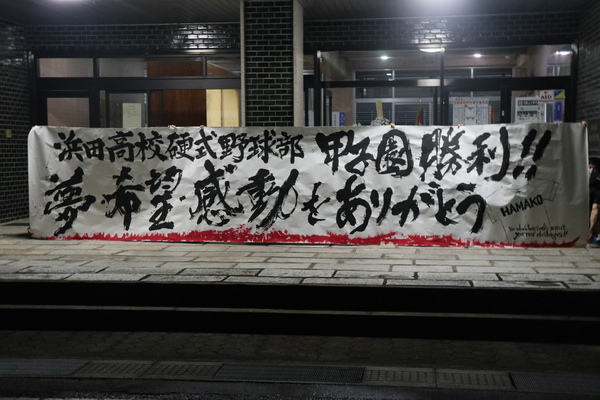 浜田高校硬式野球部 甲子園勝利!!
夢希望感動をありがとう
HAMAKO
AED